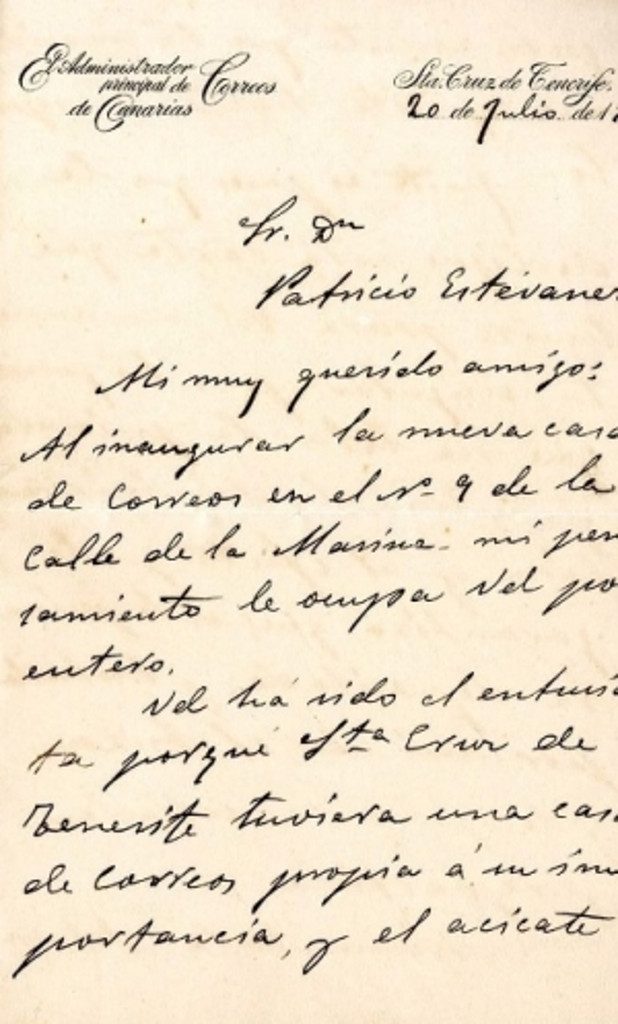 El Administrador
principal de Correos
de Canarias
Sta. Cruz de Tenerife.
20 de Julio de 1
Sr. Dn
Patricio Estévane
Mi muy querido amigo:
Al inaugurar la nueva cas
de Correos en el nº 9 de la
Calle de la Marina - mi pen
samiento le ocupa Vd por
entero.
Vd há sido el entusias
ta porqué Sta Cruz de
Tenerife tuviera una cas
de Correos propia á su im
portancia, y el acicate